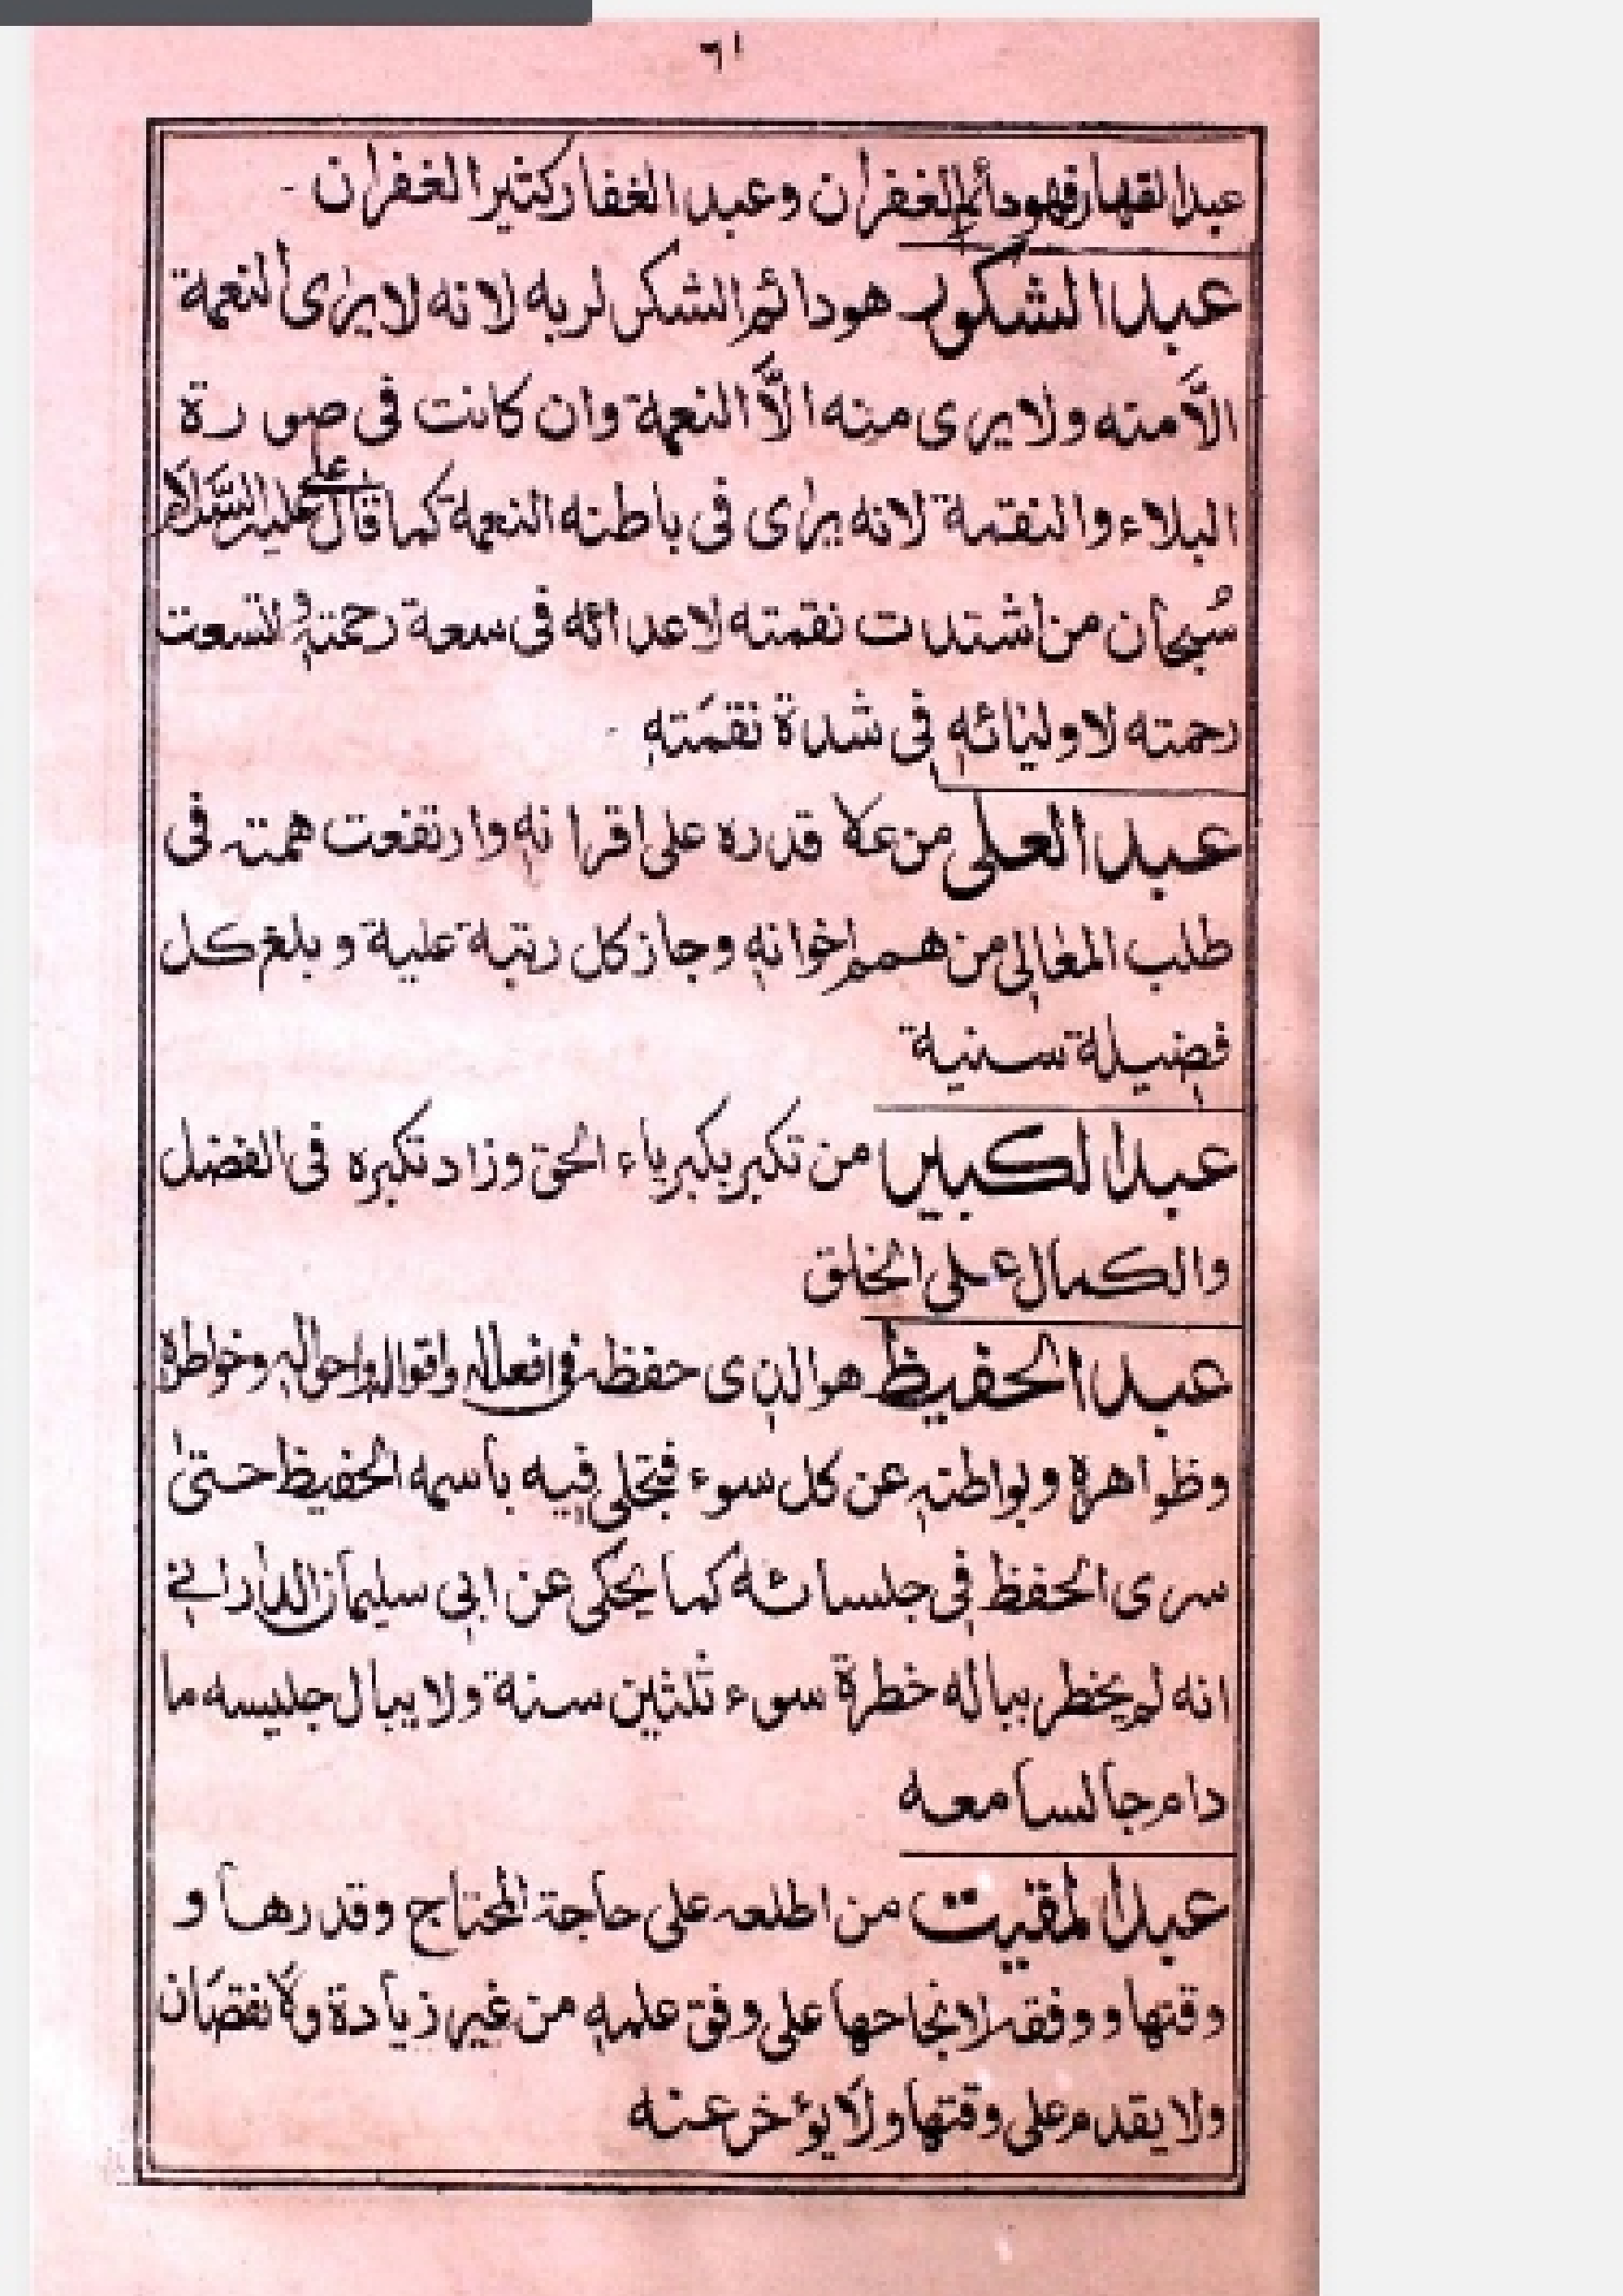 ٦١
عبد القهار فهو دائم الغفران وعبد الغفار كثير الغفران -
عبد الشكور هو دائم الشكر لربه لانه لا يرى النعمة
الّا منه ولا يرى منه الّا النعمة وان كانت فى صورة
البلاء والنقمة لانه يرى فى باطنه النعمة كما قال على عليه السَّلام
سُبحان من اشتدت نقمته لاعدائه فى سعة رحمتهٖ واتسعت
رحمته لاوليائهٖ فى شدة نقمَتهٖ -
عبد العلى من علا قدره على اقرانهٖ وارتفعت همته فى
طلب المغالى من همم اخوانهٖ وجاز كل رتبة علية و بلغ كل
فضيلة سنية
عبد الكبير من تكبر بكبرياء الحق وزاد تكبره فى الفضل
والكمال على الخلق
عبد الحفيظ هو الذى حفظه فى افعاله واقواله واحواله وخواطره
وظواهره وبواطنهٖ عن كل سوء فتجلى فيه باسمه الحفيظ حتىٰ
سرى الحفظ فى جلسائه كما يحكى عن ابى سليمان الدارانى
انه لم يخطر بباله خطرة سوء ثلثين سنة ولا يبال جليسه ما
دام جالسا معه
عبد المقيت من اطلعه على حاجة المحتاج وقدرها و
وقتها ووفقه لانجاحها على وفق علمهٖ من غير زيادة ولا نقصان
ولا يقدم على وقتها ولا يؤخر عنه